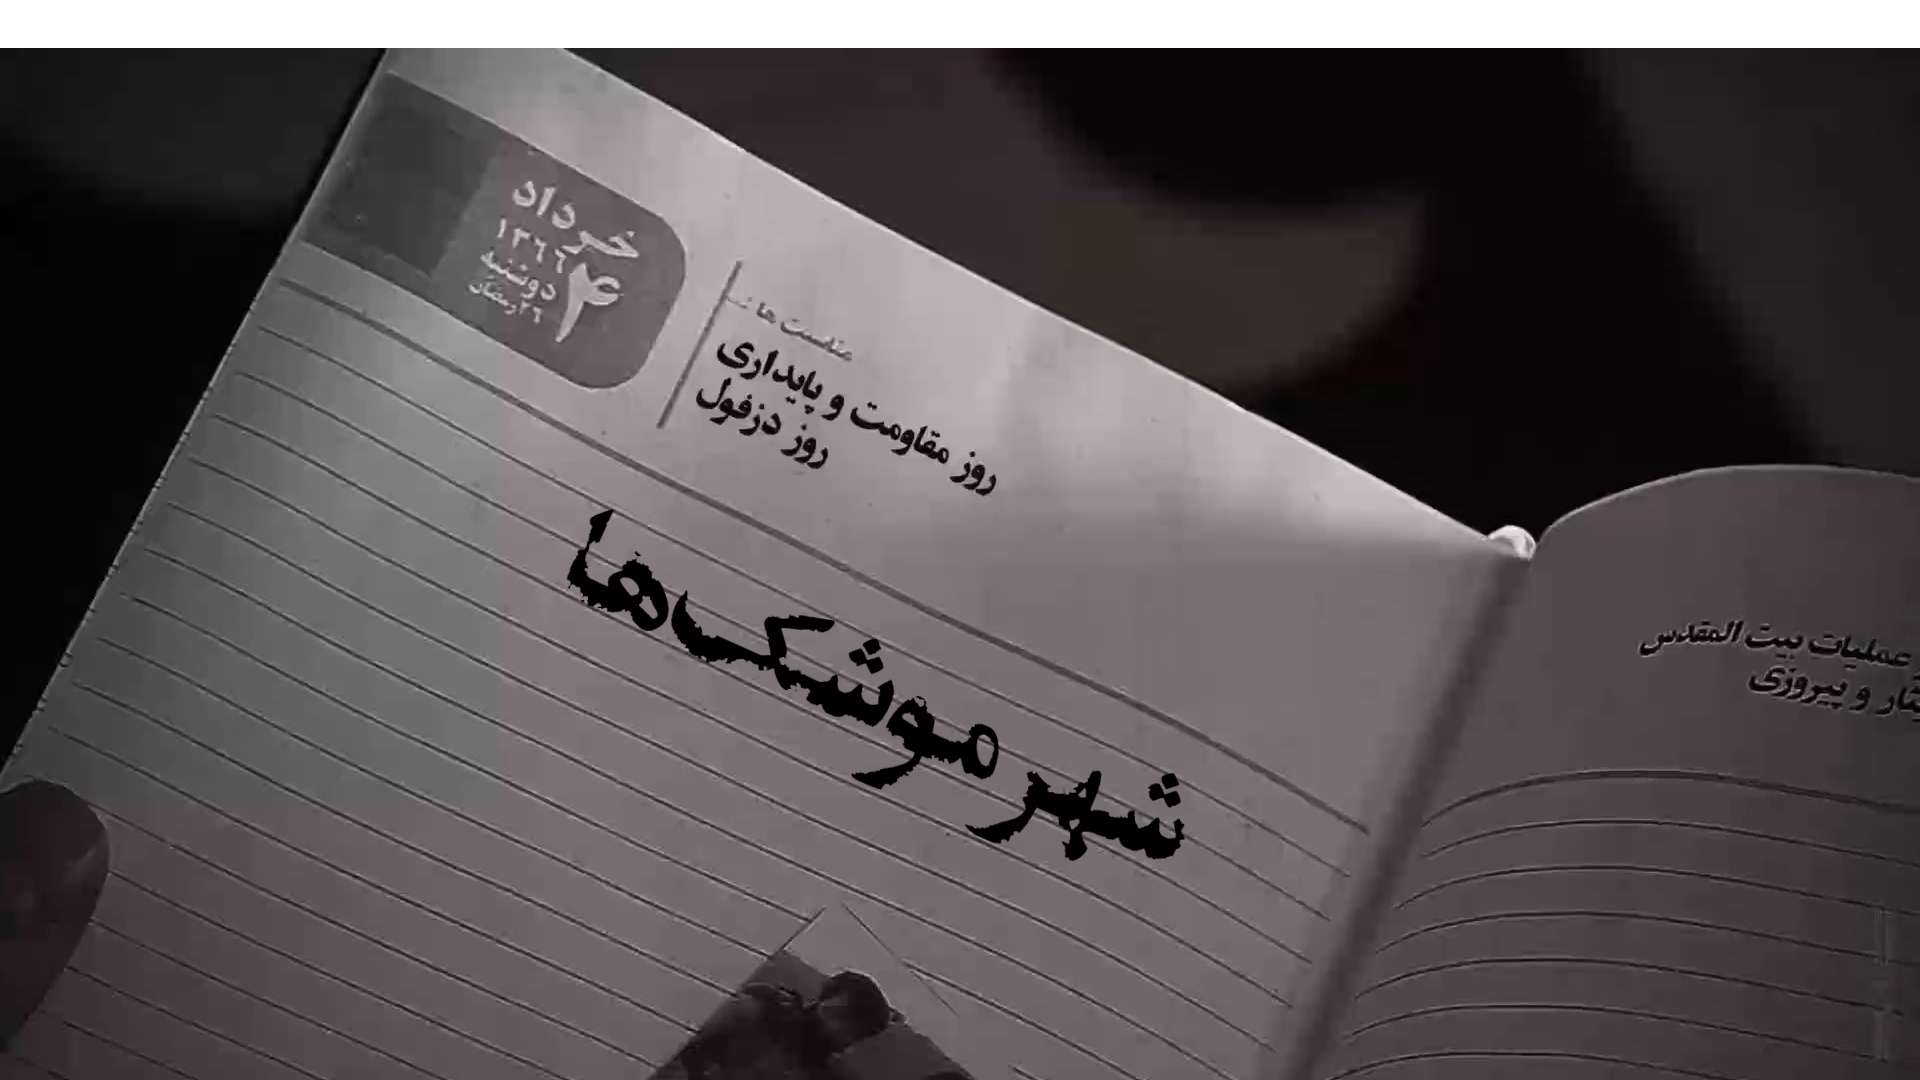 خرداد
۱۳۶۶
۴
دوشنبه
۲۶ رمضان
مناسبت ها
روز مقاومت و پایداری
روز دزفول
شهر موشک‌ها
عملیات بیت المقدس
و پیروزی